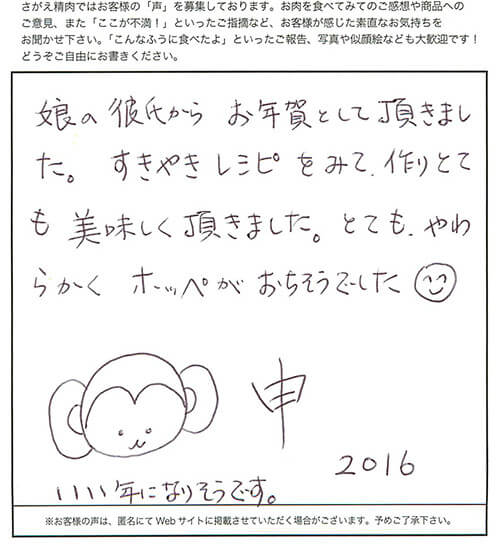 さがえ精肉ではお客様の「声」を募集しております。お肉を食べてみてのご感想や商品への
ご意見、また「ここが不満！」といったご指摘など、お客様が感じた素直なお気持ちを
お聞かせ下さい。「こんなふうに食べたよ」といったご報告、写真や似顔絵なども大歓迎です！
どうぞご自由にお書きください。
娘の彼氏から お年賀として頂きまし
た。 すきやきレシピをみて、作りとて
も美味しく頂きました。とても、やわ
らかく ホッペがおちそうでした
申
2016
いいい年になりそうです。
※お客様の声は、匿名にてWebサイトに掲載させていただく場合がございます。予めご了承下さい。